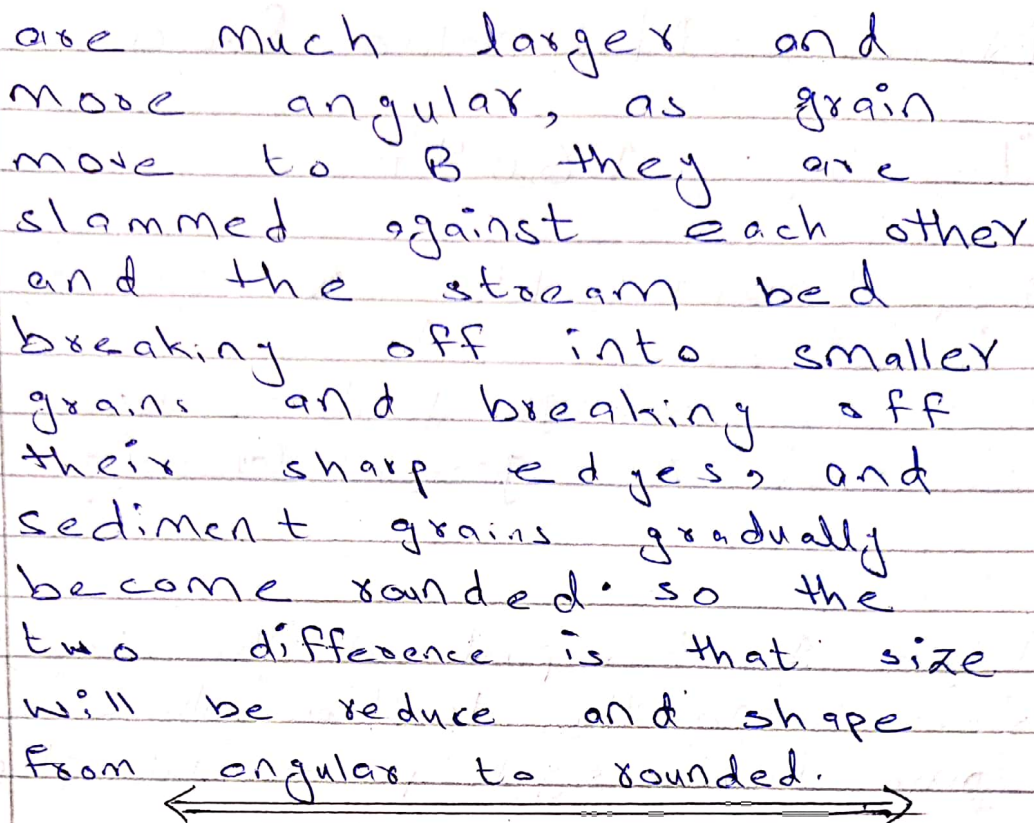 are much larger and
more angular, as grain
move to B they are
slammed against each other
and the stream bed
breaking off into smaller
grains and breaking off
their sharp edges, and
sediment grains gradually
become rounded. so the
two difference is that size
will be reduce and shape
from angular to rounded.